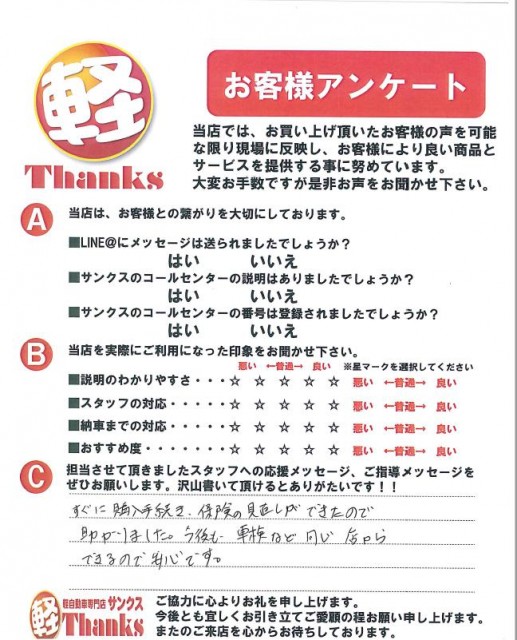 軽
Thanks
お客様アンケート
当店では、お買い上げ頂いたお客様の声を可能
な限り現場に反映し、お客様により良い商品と
サービスを提供する事に努めています。
大変お手数ですが是非お声をお聞かせ下さい。
A 当店は、お客様との繋がりを大切にしております。
■LINE@にメッセージは送られましたでしょうか？
はい いいえ
■サンクスのコールセンターの説明はありましたでしょうか？
はい いいえ
■サンクスのコールセンターの番号は登録されましたでしょうか？
はい いいえ
B 当店を実際にご利用になった印象をお聞かせ下さい。
悪い ←普通→ 良い ※星マークを選択してください
■説明のわかりやすさ・・・・☆ ☆ ☆ ☆ ☆ 悪い ←普通→ 良い
■スタッフの対応・・・・・☆ ☆ ☆ ☆ ☆ 悪い ←普通→ 良い
■納車までの対応・・・・・☆ ☆ ☆ ☆ ☆ 悪い ←普通→ 良い
■おすすめ度・・・・・・・☆ ☆ ☆ ☆ ☆ 悪い ←普通→ 良い
C 担当させて頂きましたスタッフへの応援メッセージ、ご指導メッセージを
ぜひお願いします。沢山書いて頂けるとありがたいです！！
すぐに購入手続き、保険の見直しができたので
助かりました。今後も車検など同じ店から
できるので安心です。
軽 軽自動車専門店 サンクス
Thanks
ご協力に心よりお礼を申し上げます。
今後とも宜しくお引き立てご愛顧の程お願い申し上げます。
またのご来店を心からお待ちしております。